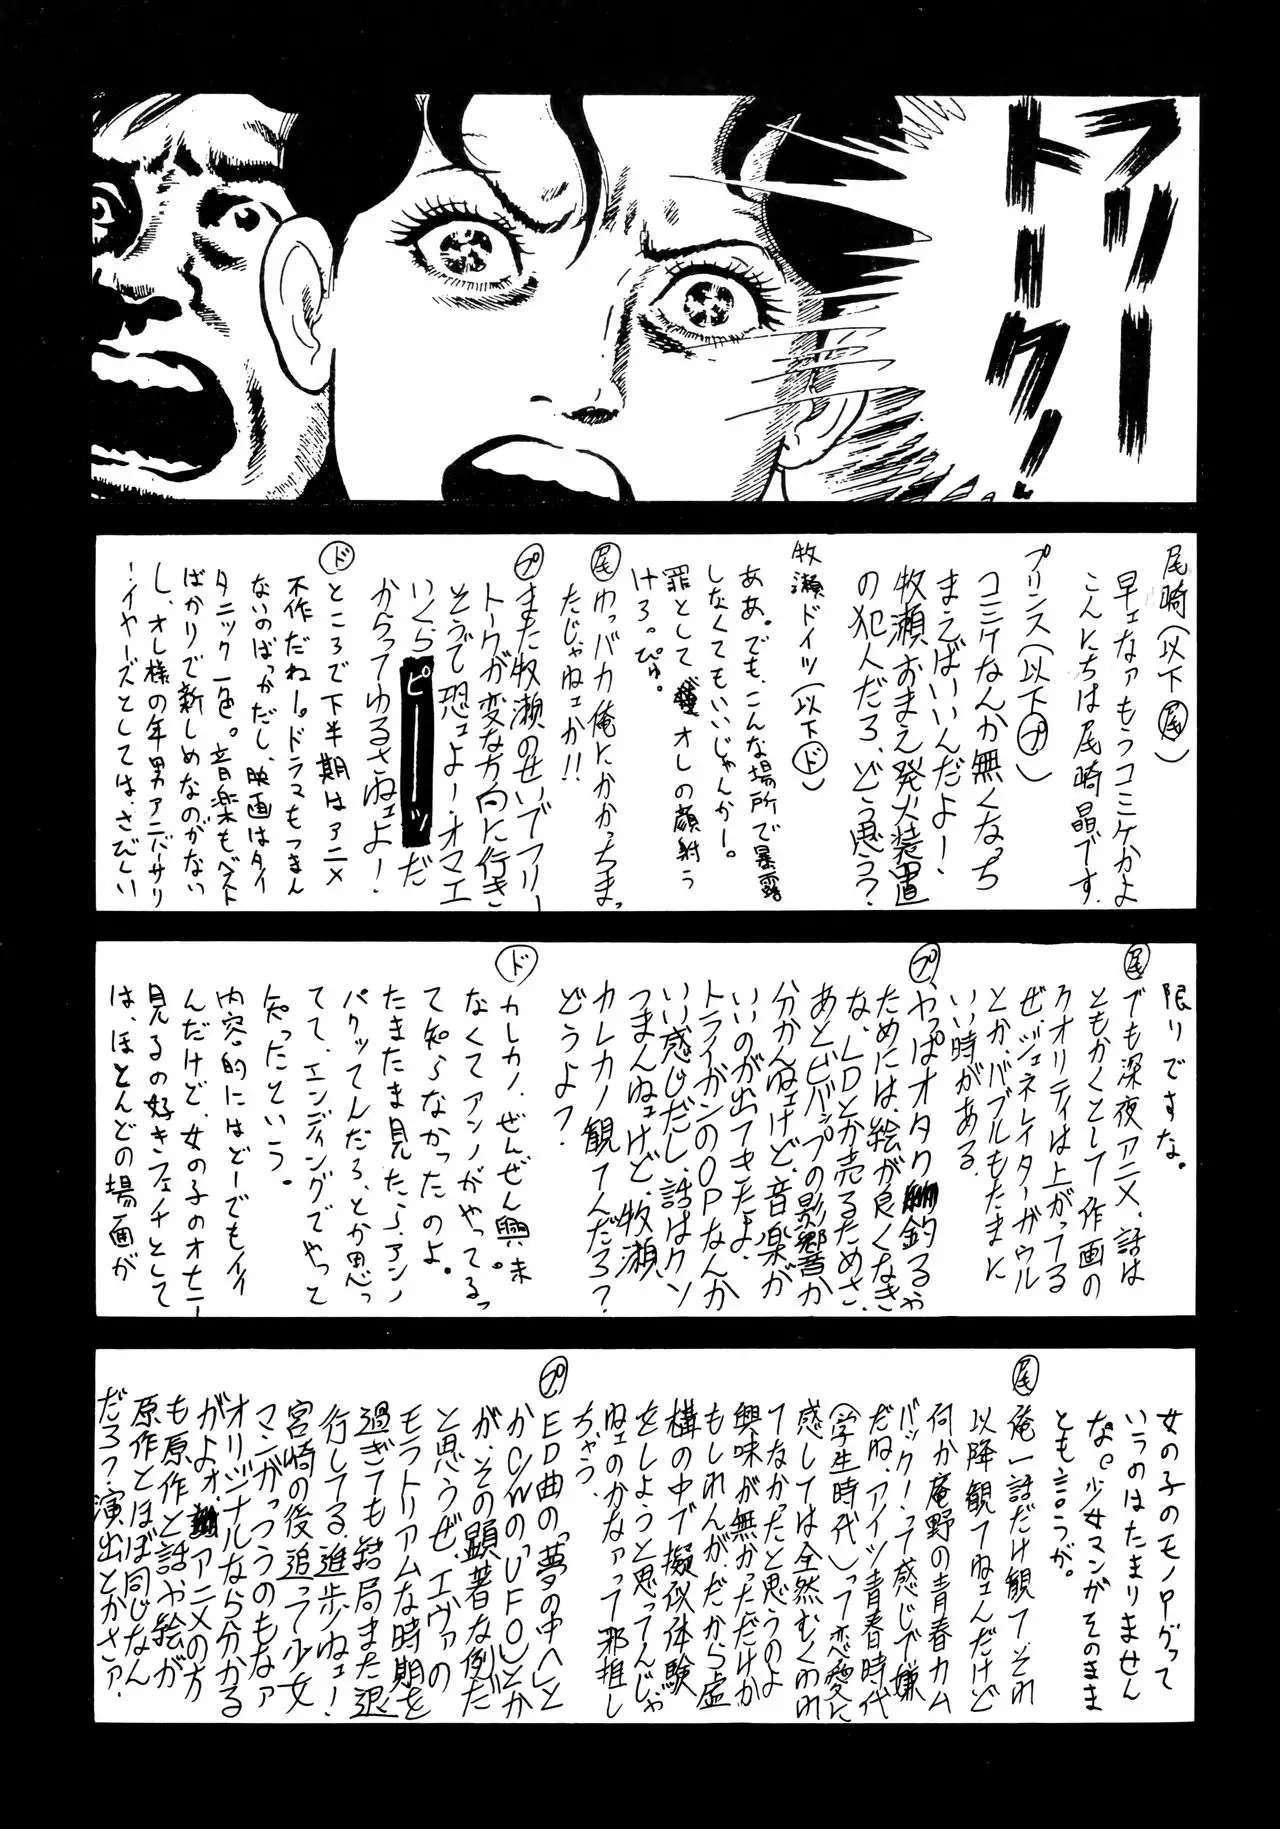 フリー
トーク!
尾崎(以下尾)
早ェなァもうコミケかよ
こんにちは尾崎晶です.
プリンス(以下プ)
コミケなんか無くなっち
まえばいいんだよー、
牧瀬おまえ発火装置
の犯人だろ、どう思う?
牧瀬ドイツ(以下ド)
ああ。でも、こんな場所で暴露
しなくてもいいじゃんかー。
罪として オレの顔射う
けろ。ぴゅ。
尾 ゆっバカ俺にかかっちまっ
たじゃねェか!!
プ また牧瀬のせいでフリー
トークが変な方向に行き
そうで恐ェよー!オマエ
いくらピーーーッだ
からってゆるさねェよ!
ド ところで下半期はアニメ
不作だねー。ドラマもつまん
ないのばっかだし、映画はタイ
タニック一色。音楽もベスト
ばかりで新しめなのがない
し、オレ様の年男アニバーサリ
ーイヤーズとしては、さびしい
限りですな。
尾 でも深夜アニメ、話は
ともかくとして作画の
クオリティは上がってる
ぜ。ジェネレイターガウル
とか、バブルもたまに
いい時がある。
プ、やっぱオタク釣るや
ためには、絵が良くなき
な、LDとか売るためさ、
あとビバップの影響か
分かんねェけど、音楽が
いいのが出てきたよ、
トライガンのOPなんか
いい感じだし、話はクソ
つまんねェけど、牧瀬、
カレカノ観てんだろ?
どうよ?
ド カレカノ、ぜんぜん興味
なくてアンノがやってるっ
て知らなかったのよ。
たまたま見たら、アンノ
パクッてんだろ、とか思っ
てて、エンディングでやっと
知ったという。
内容的にはどーでもイイ
んだけど、女の子のオナニー
見るの好きフェチとして
は、ほとんどの場面が
女の子のモノローグって
いうのはたまりません
な。少女マンガそのまま
とも言うが。
尾 俺一話だけ観てそれ
以降観てねェんだけど
何か庵野の青春カム
バックーって感じで嫌
だね、アイツ青春時代
(学生時代)って恋愛に
感しては全然むくわれ
てなかったと思うのよ
興味が無かっただけか
もしれんが、だから虚
構の中で擬似体験
をしようと思ってんじゃ
ねェのかなァって邪推し
ちゃう。
プ ED曲の「夢の中へ」と
か、CWの「UFO」とか
が、その顕著な例だ
と思うぜ、エヴァの
モラトリアムな時期を
過ぎても結局また退
行してる、進歩ねェ!
宮崎の後追って少女
マンガっつうのもなァ
オリジナルなら分かる
がよォ、アニメの方
も原作と話や絵が
原作とほぼ同じなん
だろ?演出とかさァ.